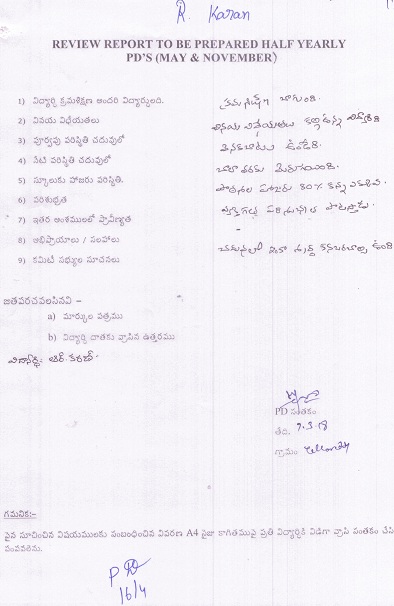 R. Karan
REVIEW REPORT TO BE PREPARED HALF YEARLY
PD'S (MAY & NOVEMBER)
1) విద్యార్థి క్రమశిక్షణ అందరి విద్యార్థులది. క్రమశిక్షణ బాగుంది.
2) వినయ విధేయతలు వినయ విధేయతలు కల్గిఉన్న విద్యార్థి
3) పూర్వపు పరిస్థితి చదువులో వెనకబాటు ఉండేది.
4) నేటి పరిస్థితి చదువులో చాలా వరకు మెరుగాయింది.
5) స్కూలుకు హాజరు పరిస్థితి. పాఠశాల హాజరు 80% కన్న ఎక్కువ.
6) పరిశుభ్రత వ్యక్తిగత పరిశుభ్రత పాటిస్తాడు.
7) ఇతర అంశములలో ప్రావీణ్యత -
8) అభిప్రాయాలు / సలహాలు చదువులో ఇంకా శ్రద్ధ కనబరచాల్సి ఉంది
9) కమిటీ సభ్యుల సూచనలు
జతపరచవలసినవి –
a) మార్కుల పత్రము
b) విద్యార్థి దాతకు వ్రాసిన ఉత్తరము
విద్యార్థి:- ఆర్. కరణ్.
PD సంతకం
తేది. 7.3.18
గ్రామం
గమనిక:-
పైన సూచించిన విషయములకు సంబంధించిన వివరణ A4 సైజు కాగితముపై ప్రతి విద్యార్థికి విడిగా వ్రాసి సంతకం చేసి
పంపవలెను.
PD
16/4